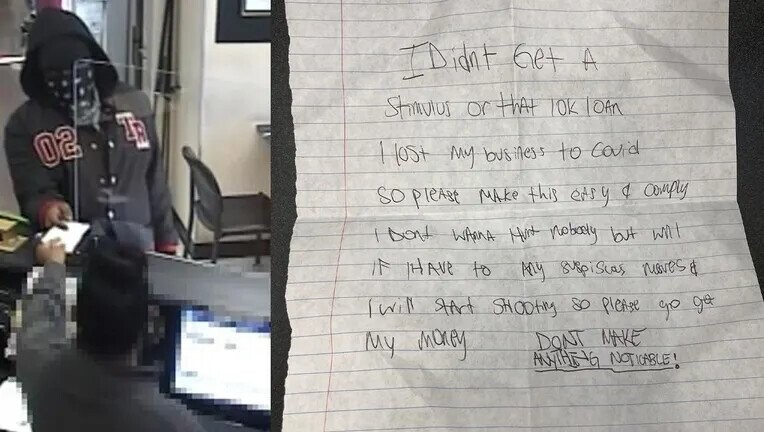 02 TR
I Didnt Get A
Stimulus or that 10K loan
I lost my business to Covid
So please make this easy & comply
I Dont wanna Hurt nobody but will
If I Have to Any suspiscus moves &
I will start shooting so please go get
My Money DONT MAKE
ANYTHING NOTICABLE!